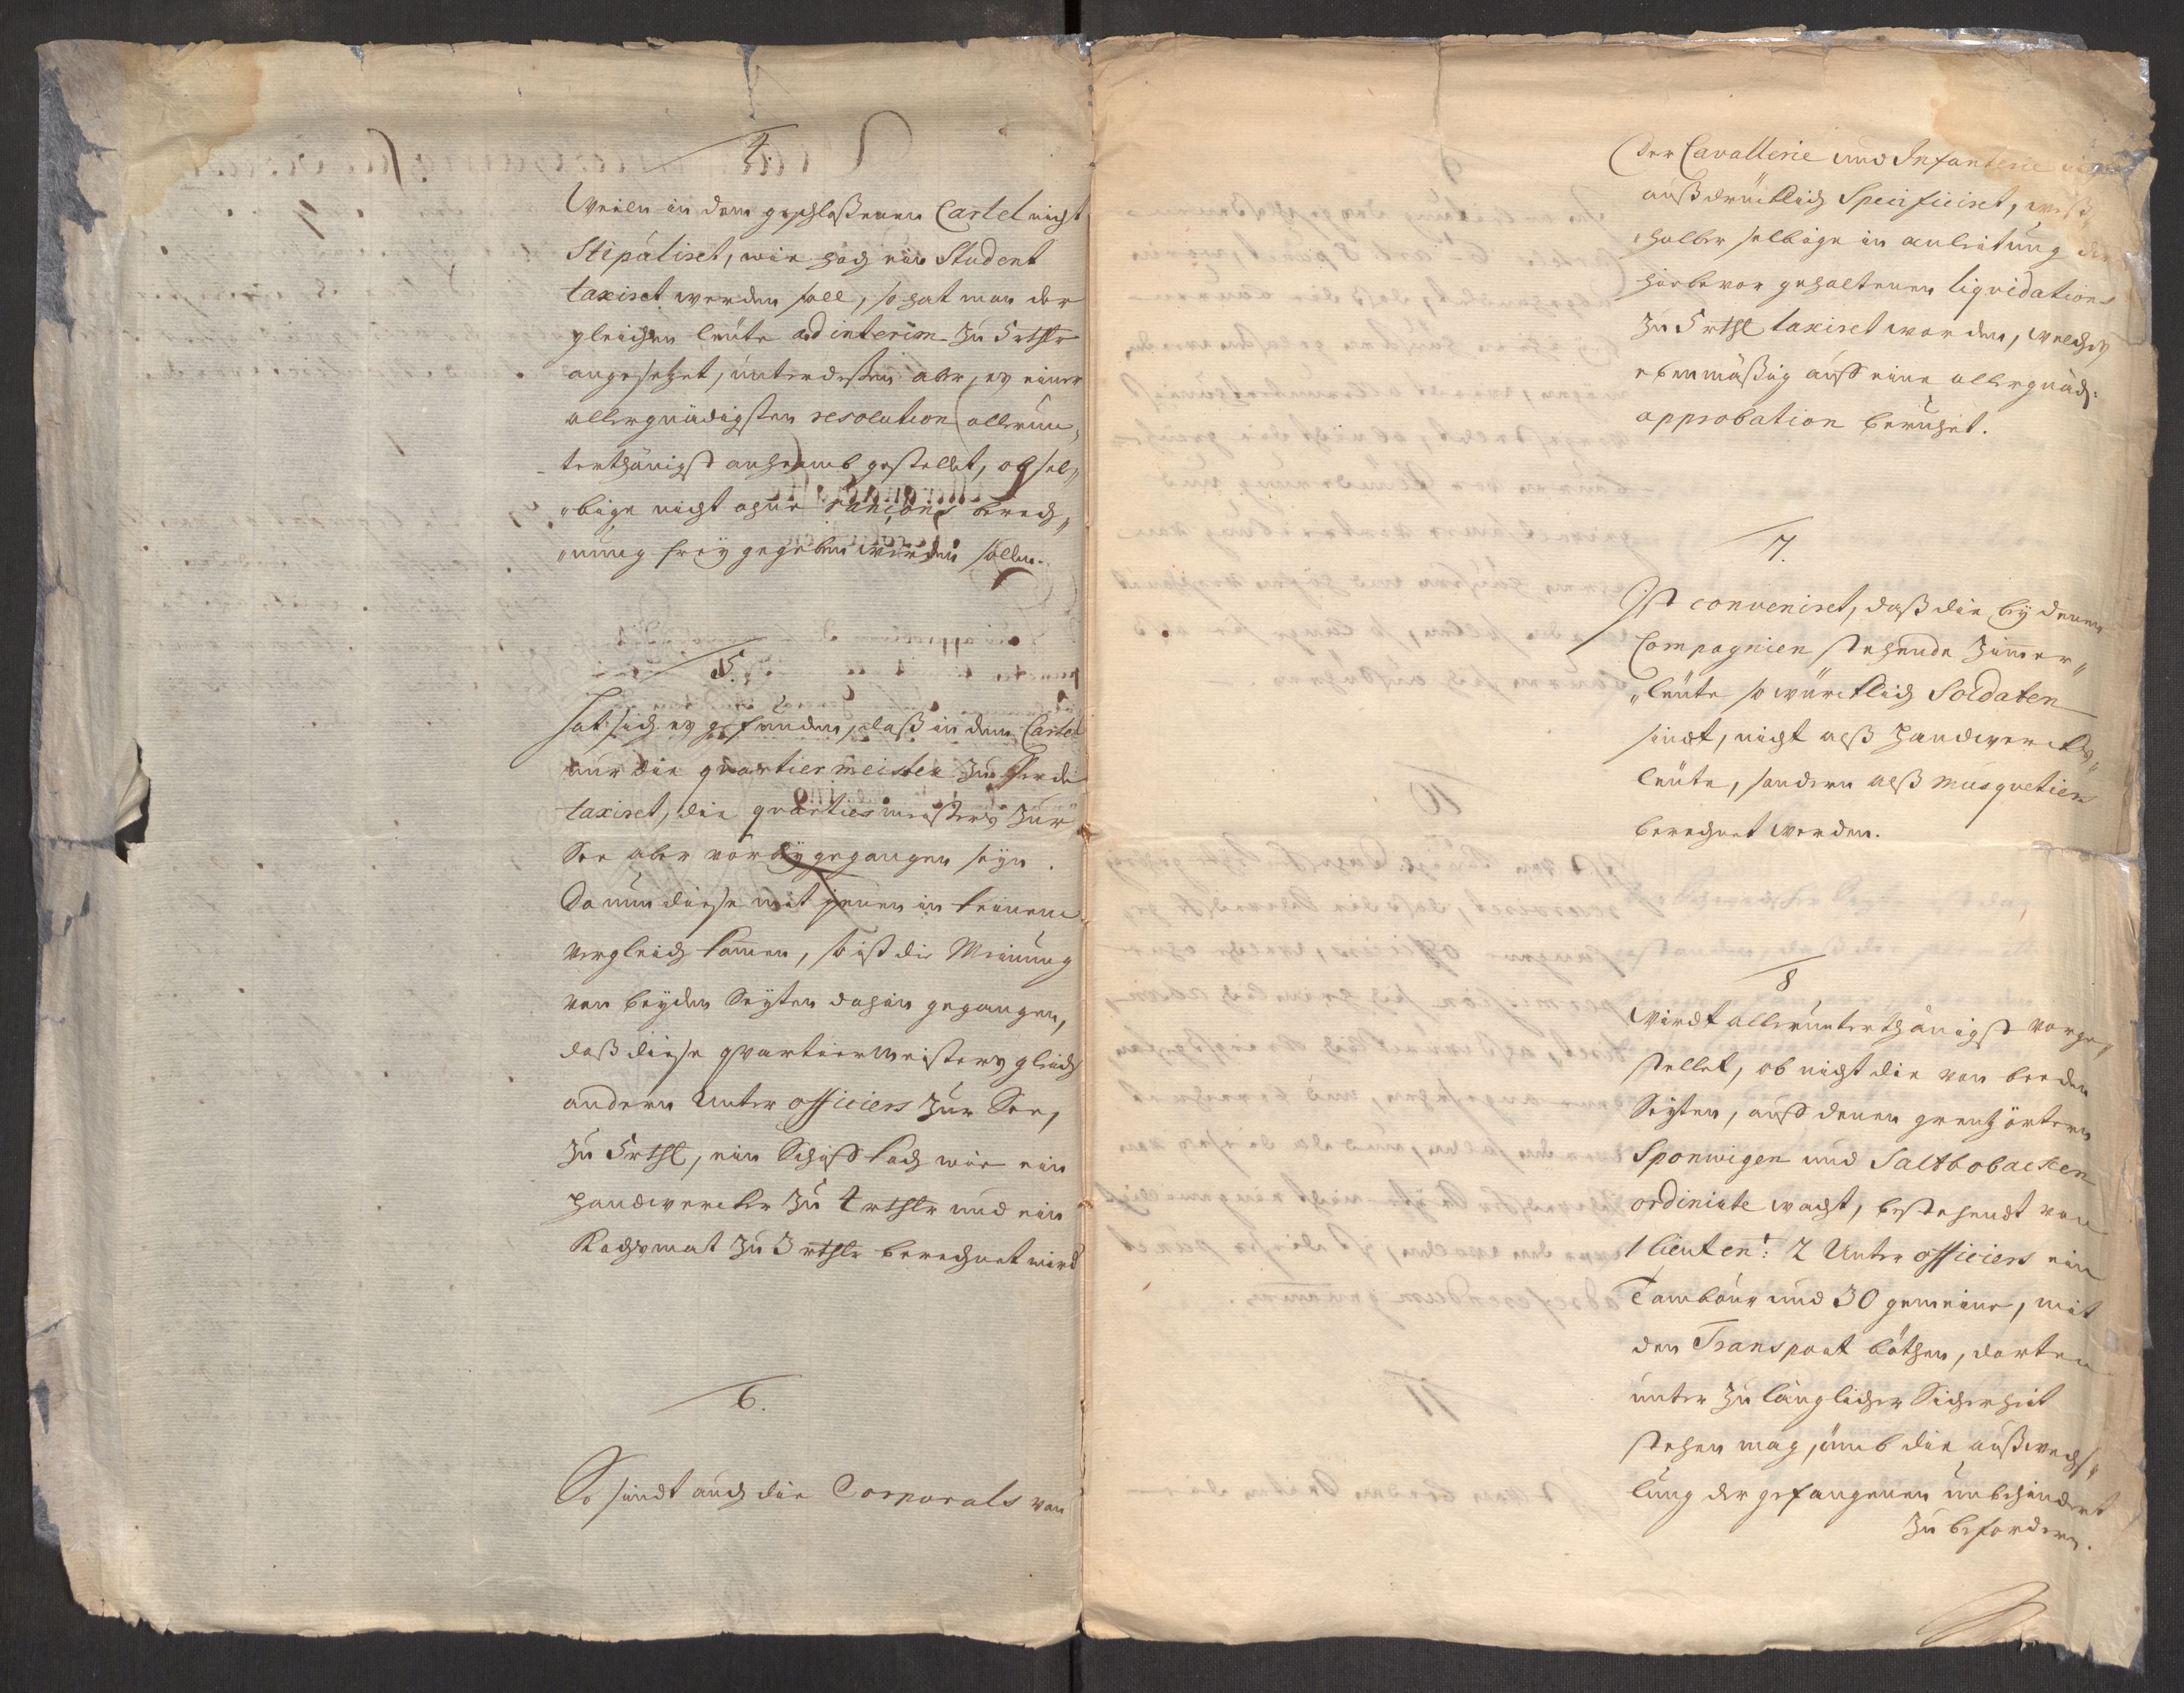 4.
Weiln in dem geschloßenen Cartel nicht
Stipuliret, wie hoch ein Student
taxiret werden soll, so hat man der
gleichen leüte ad interim zu 5 rthlr
angesetzet, unterdeßen aber, es einer
allergnädigsten resolution allerun„
terthänigst anheimb gestellet, ob sel„
„bige nicht ohne rançons berech„
„nung freÿ gegeben werden sollen.
5.
Hat sich es gefunden, daß in dem Cartel
nur die quartiermeister zu Pferde
taxiret, die quartiermeisters zur
See aber vorbeÿ gegangen seyn.
Da nun diese mit jenen in keinen
vergleich kommen, so ist die Meinung
von beyden Seyten dahin gegangen,
daß diese quartiermeisters gleich
andern Unter officiers zur See,
zu 5 rthl, ein Schiff koch wie ein
handwercker zu 4 rthlr und ein
Kochsmat zu 3 rthlr berechnet wird
6.
So sindt auch die Corporals von
der Cavallerie und Infanterie
außdrücklich Specificiret, weß„
halber selbige in anleitung der
hierbevor gehaltenen liquidations
zu 5 rthl taxiret worden, welches
ebenmäßig auff eine allergnäd:
approbation beruhet.
7.
Ist conveniret, daß die beÿ denen
Compagnien stehende Zimmer„
„leüte so würcklich Soldaten
sindt, nicht alß Handwercks„
leüte, sondern alß musquetiers
berechnet werden.
8
Wirdt allerunterthänigst vorge„
stellet, ob nicht die von beeden
Seyten, auff denen grentz örtern
Sponwigen und Saltbobacken
ordiniute wacht, bestehendt von
1 lieutent: 2 Unter officiers ein
Tambour und 30 gemeine, mit
den Transport böthen, dorten
unter zulänglicher Sicherheit
stehen mag, umb die außwechs„
lung der gefangenen unbehindert
zu befordern.